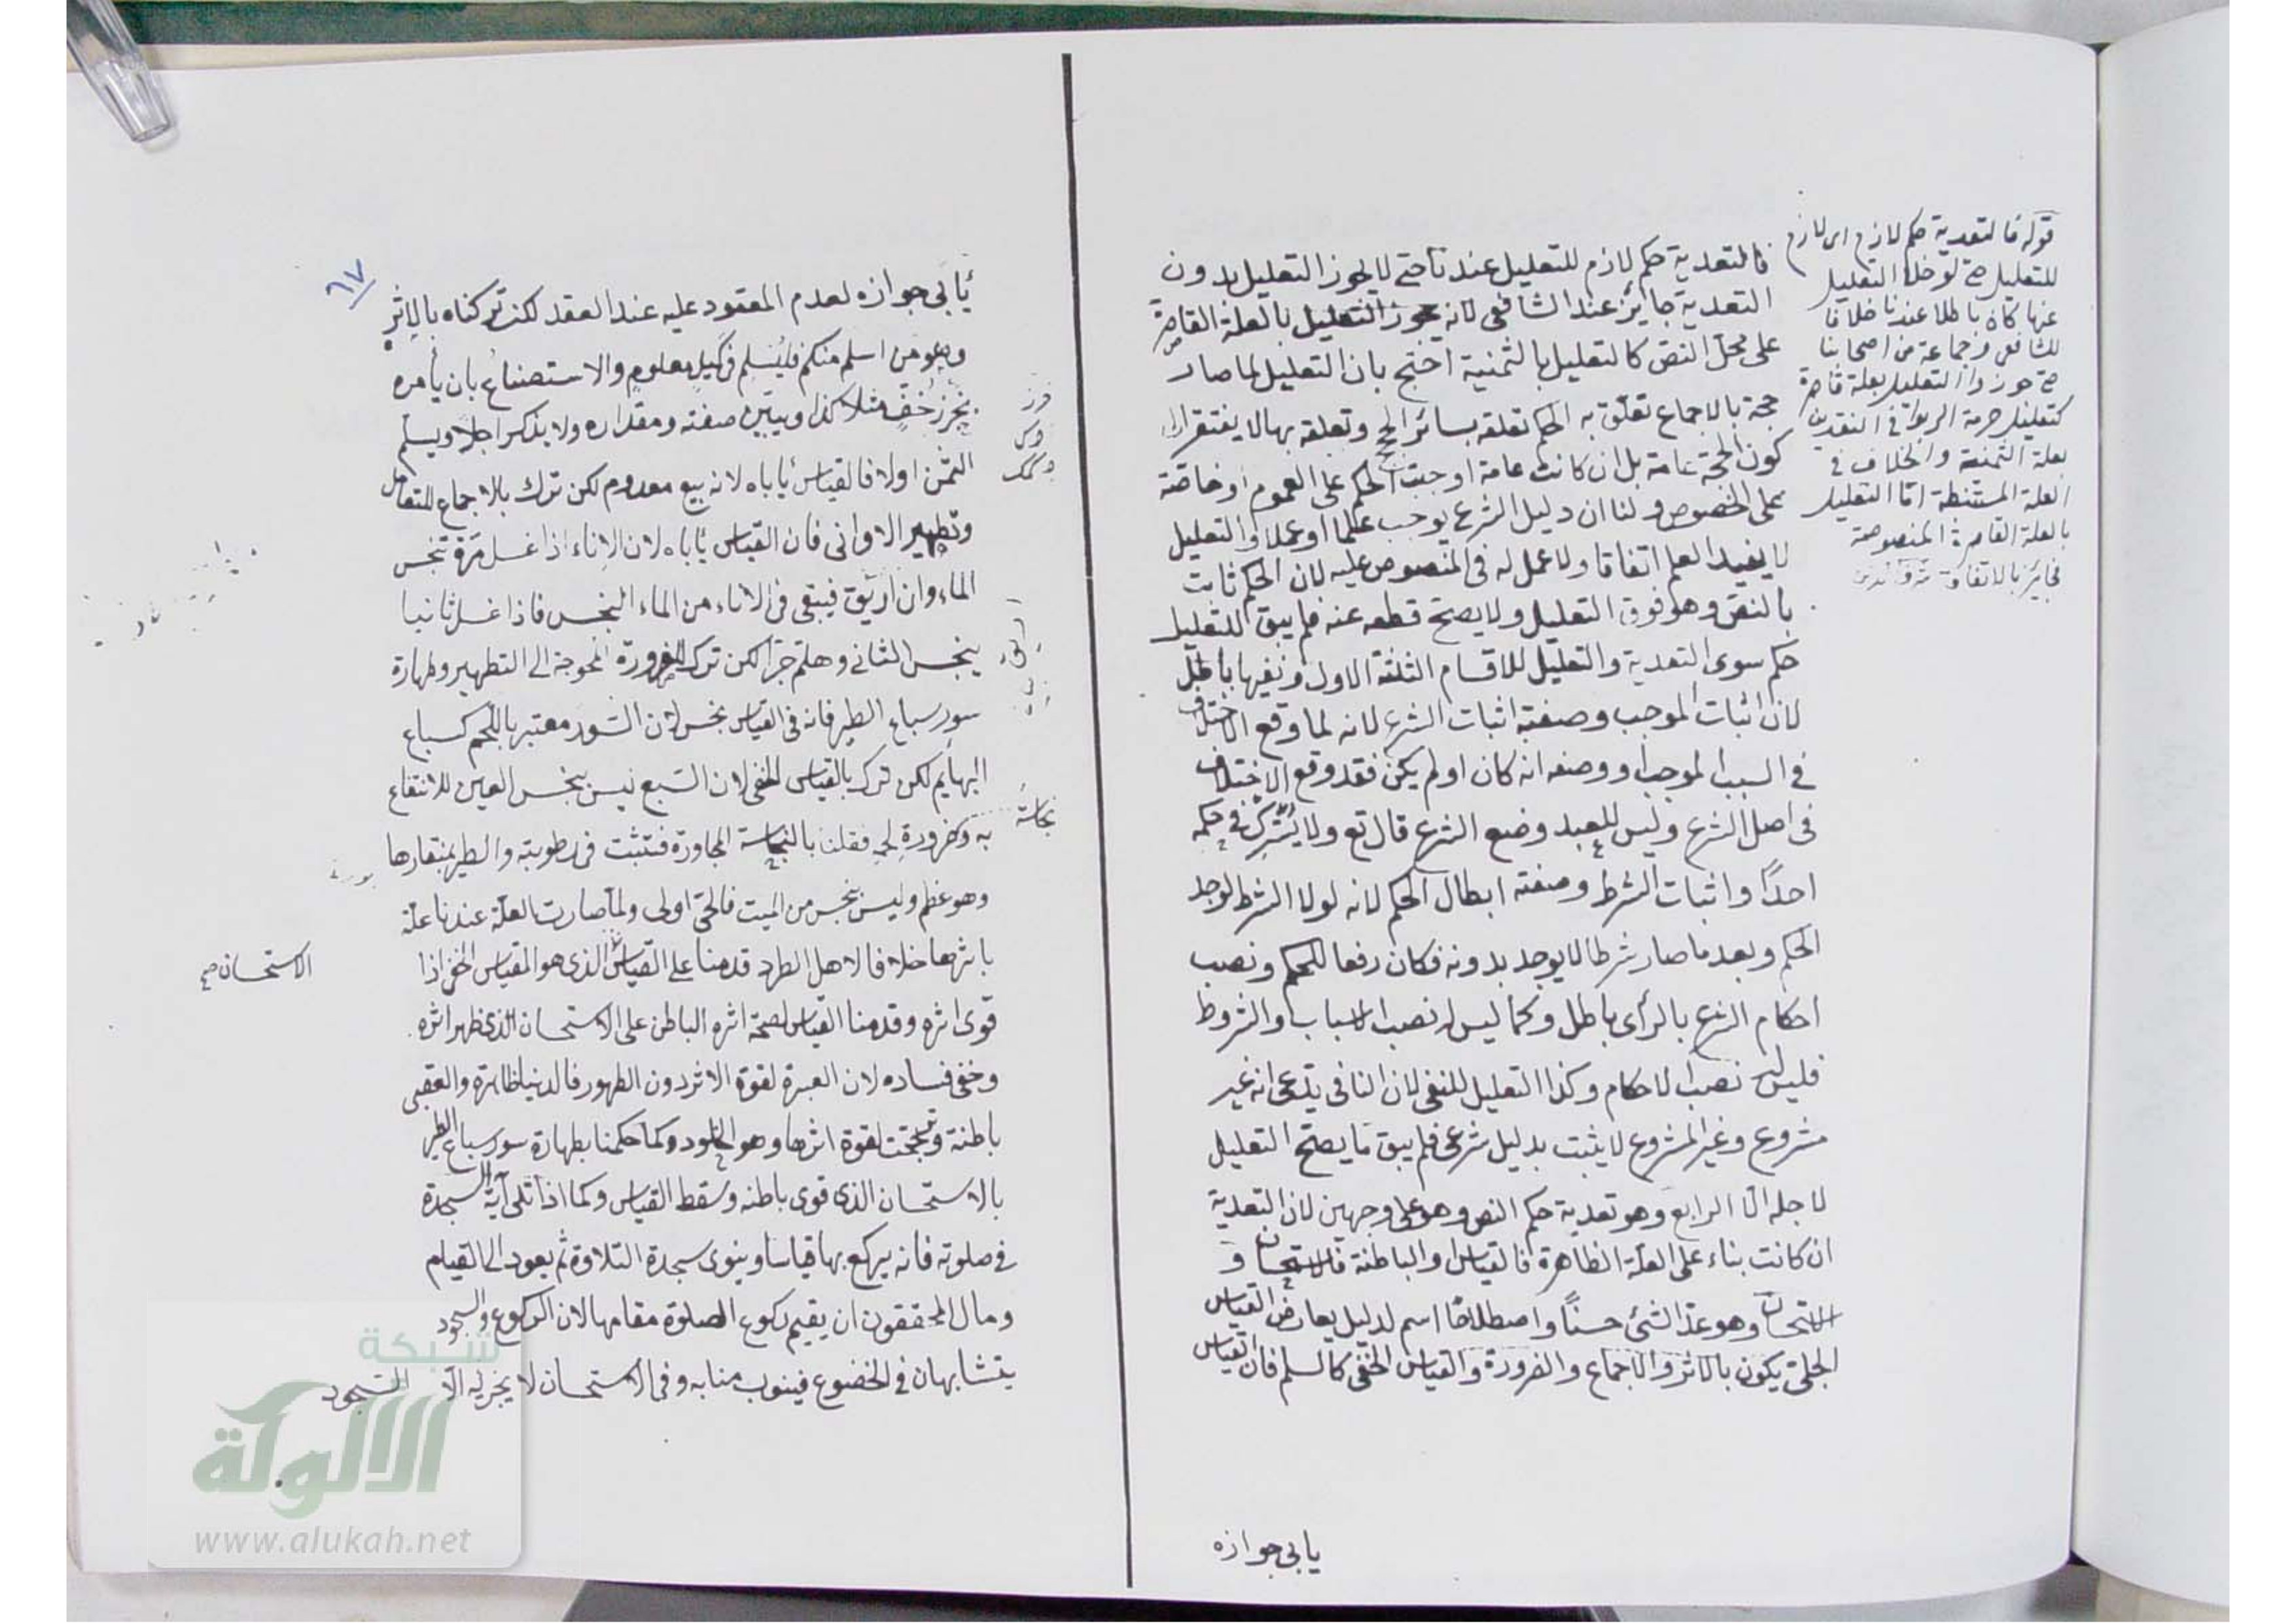 فالتعدية حكم لازم للتعليل عندنا حتى لا يجوز التعليل بدون
التعدية جايز عند الشافعى لانه يجوز التعليل بالعلة القاصرة
على محل النص كالتعليل بالثمنية احتج بان التعليل لما صار
حجة بالاجماع تعلق به الحكم تعلقه بسائر الحجج وتعلقه بها لا يفتقر الى
كون الحجة عامة بل ان كانت عامة اوجبت الحكم على العموم او خاصة
على الخصوص ولنا ان دليل الشرع يوجب علما او عملا والتعليل
لا يفيد العلم اتفاقا ولا عمل له فى المنصوص عليه لان الحكم ثابت
بالنص وهو فوق التعليل ولا يصح قطعه عنه فلم يبق للتعليل
حكم سوى التعدية والتعليل للاقسام الثلثة الاول ونفيها باطل
لان اثبات الموجب وصفته اثبات الشرع لانه لما وقع الاختلاف
فى السبب الموجب او وصفه انه كان او لم يكن فقد وقع الاختلاف
فى اصل الشرع وليس للعبد وضع الشرع قال تع ولا يشرك فى حكمه
احدًا واثبات الشرط وصفته ابطال الحكم لانه لولا الشرط لوجد
الحكم وبعد ما صار شرطا لا يوجد بدونه فكان رفعا للحكم ونصب
احكام الشرع بالرأى باطل وكما ليس له نصب الاسباب والشروط
فليس له نصب الاحكام وكذا التعليل للنفى لان النافى يدعى انه غير
مشروع وغير المشروع لا يثبت بدليل شرعى فلم يبق ما يصح التعليل
لاجله الا الرابع وهو تعدية حكم النص وهو على وجهين لان التعدية
ان كانت بناء على العلة الظاهرة فالقياس او الباطنة فالاستحسان و
الاستحسان وهو عدّ الشئ حسنًا واصطلاحًا اسم لدليل يعارض القياس
الجلى يكون بالاثر والاجماع والضرورة والقياس الخفى كالسلم فان القياس
يابى جوازه
قوله فالتعدية حكم لازم اى لازم
للتعليل حتى لو خلا التعليل
عنها كان باطلا عندنا خلافا
للشافعى وجماعة من اصحابنا
حتى جوزوا التعليل بعلة قاصرة
كتعليل حرمة الربوا فى النقدين
بعلة الثمنية والخلاف فى
العلة المستنبطة اما التعليل
بالعلة القاصرة المنصوصة
فجائز بالاتفاق
٦٧
يأبى جوازه لعدم المعقود عليه عند العقد لكن تركناه بالاثر
وهو من اسلم منكم فليُسلم فى كيل معلوم والاستصناع بان يأمره
بخرز خُفّ مثلا كذا ويبيّن صفته ومقداره ولا يذكر اجلا ويسلم
الثمن اولا فالقياس يأباه لانه بيع معدوم لكن ترك بالاجماع للتعامل
وتطهير الاوانى فان القياس يأباه لان الاناء اذا غسل مرة تنجس
الماء وان اريق فيبقى فى الاناء من الماء النجس فاذا غسل ثانيا
ينجس الثانى وهلمّ جرّا لكن ترك للضرورة المحوجة الى التطهير وطهارة
سور سباع الطير فانه فى القياس نجس لان السور معتبر باللحم كسباع
البهايم لكن ترك بالقياس الخفى لان السبع ليس بنجس العين للانتفاع
به وضرورة لحمه فقلنا بالنجاسة المجاورة فتثبت فى رطوبته والطير بمنقارها
وهو عظم وليس بنجس من الميت فالحى اولى ولما صارت العلة عندنا علة
باثرها خلافا لاهل الطرد قدمنا على القياس الذى هو القياس الخفى اذا
قوى اثره وقدمنا القياس لصحة اثره الباطن على الاستحسان الذى ظهر اثره
وخفى فساده لان العبرة لقوة الاثر دون الظهور فالدنيا ظاهرة والعقبى
باطنة وترجحت لقوة اثرها وهو الخلود وكما حكمنا بطهارة سور سباع الطير
بالاستحسان الذى قوى باطنه وسقط القياس وكما اذا تلى آية السجدة
فى صلوته فانه يركع بها قياسا وينوى سجدة التلاوة ثم يعود الى القيام
ومال المحققون ان يقيم ركوع الصلوة مقامها لان الركوع والسجود
يتشابهان فى الخضوع فينوب منابه وفى الاستحسان لا يجزيه الا السجود
نجاسة
الاستحسان صح
شبكة
الألوكة
www.alukah.net